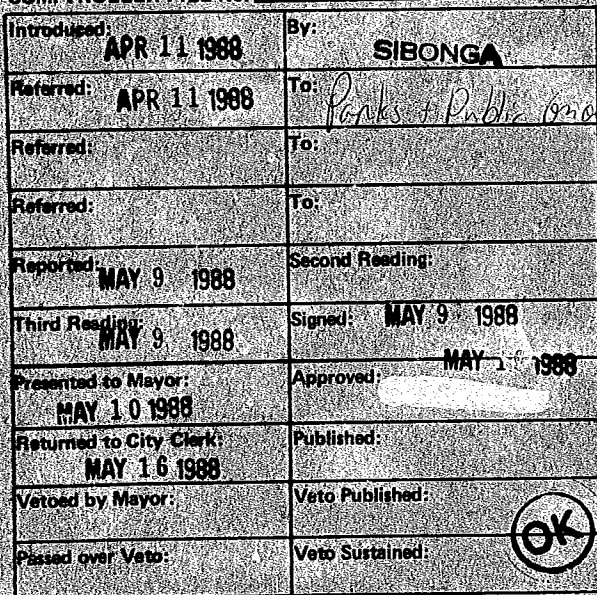 Introduced: By:
APR 11 1988 SIBONGA
Referred: APR 11 1988 To: Parks + Public
Referred: To:
Referred: To:
Reported: MAY 9 1988 Second Reading:
Third Reading: MAY 9 1988 Signed: MAY 9 1988
Presented to Mayor: MAY 10 1988 Approved: MAY 1988
Returned to City Clerk: MAY 16 1988 Published:
Vetoed by Mayor: Veto Published:
OK
Passed over Veto: Veto Sustained: